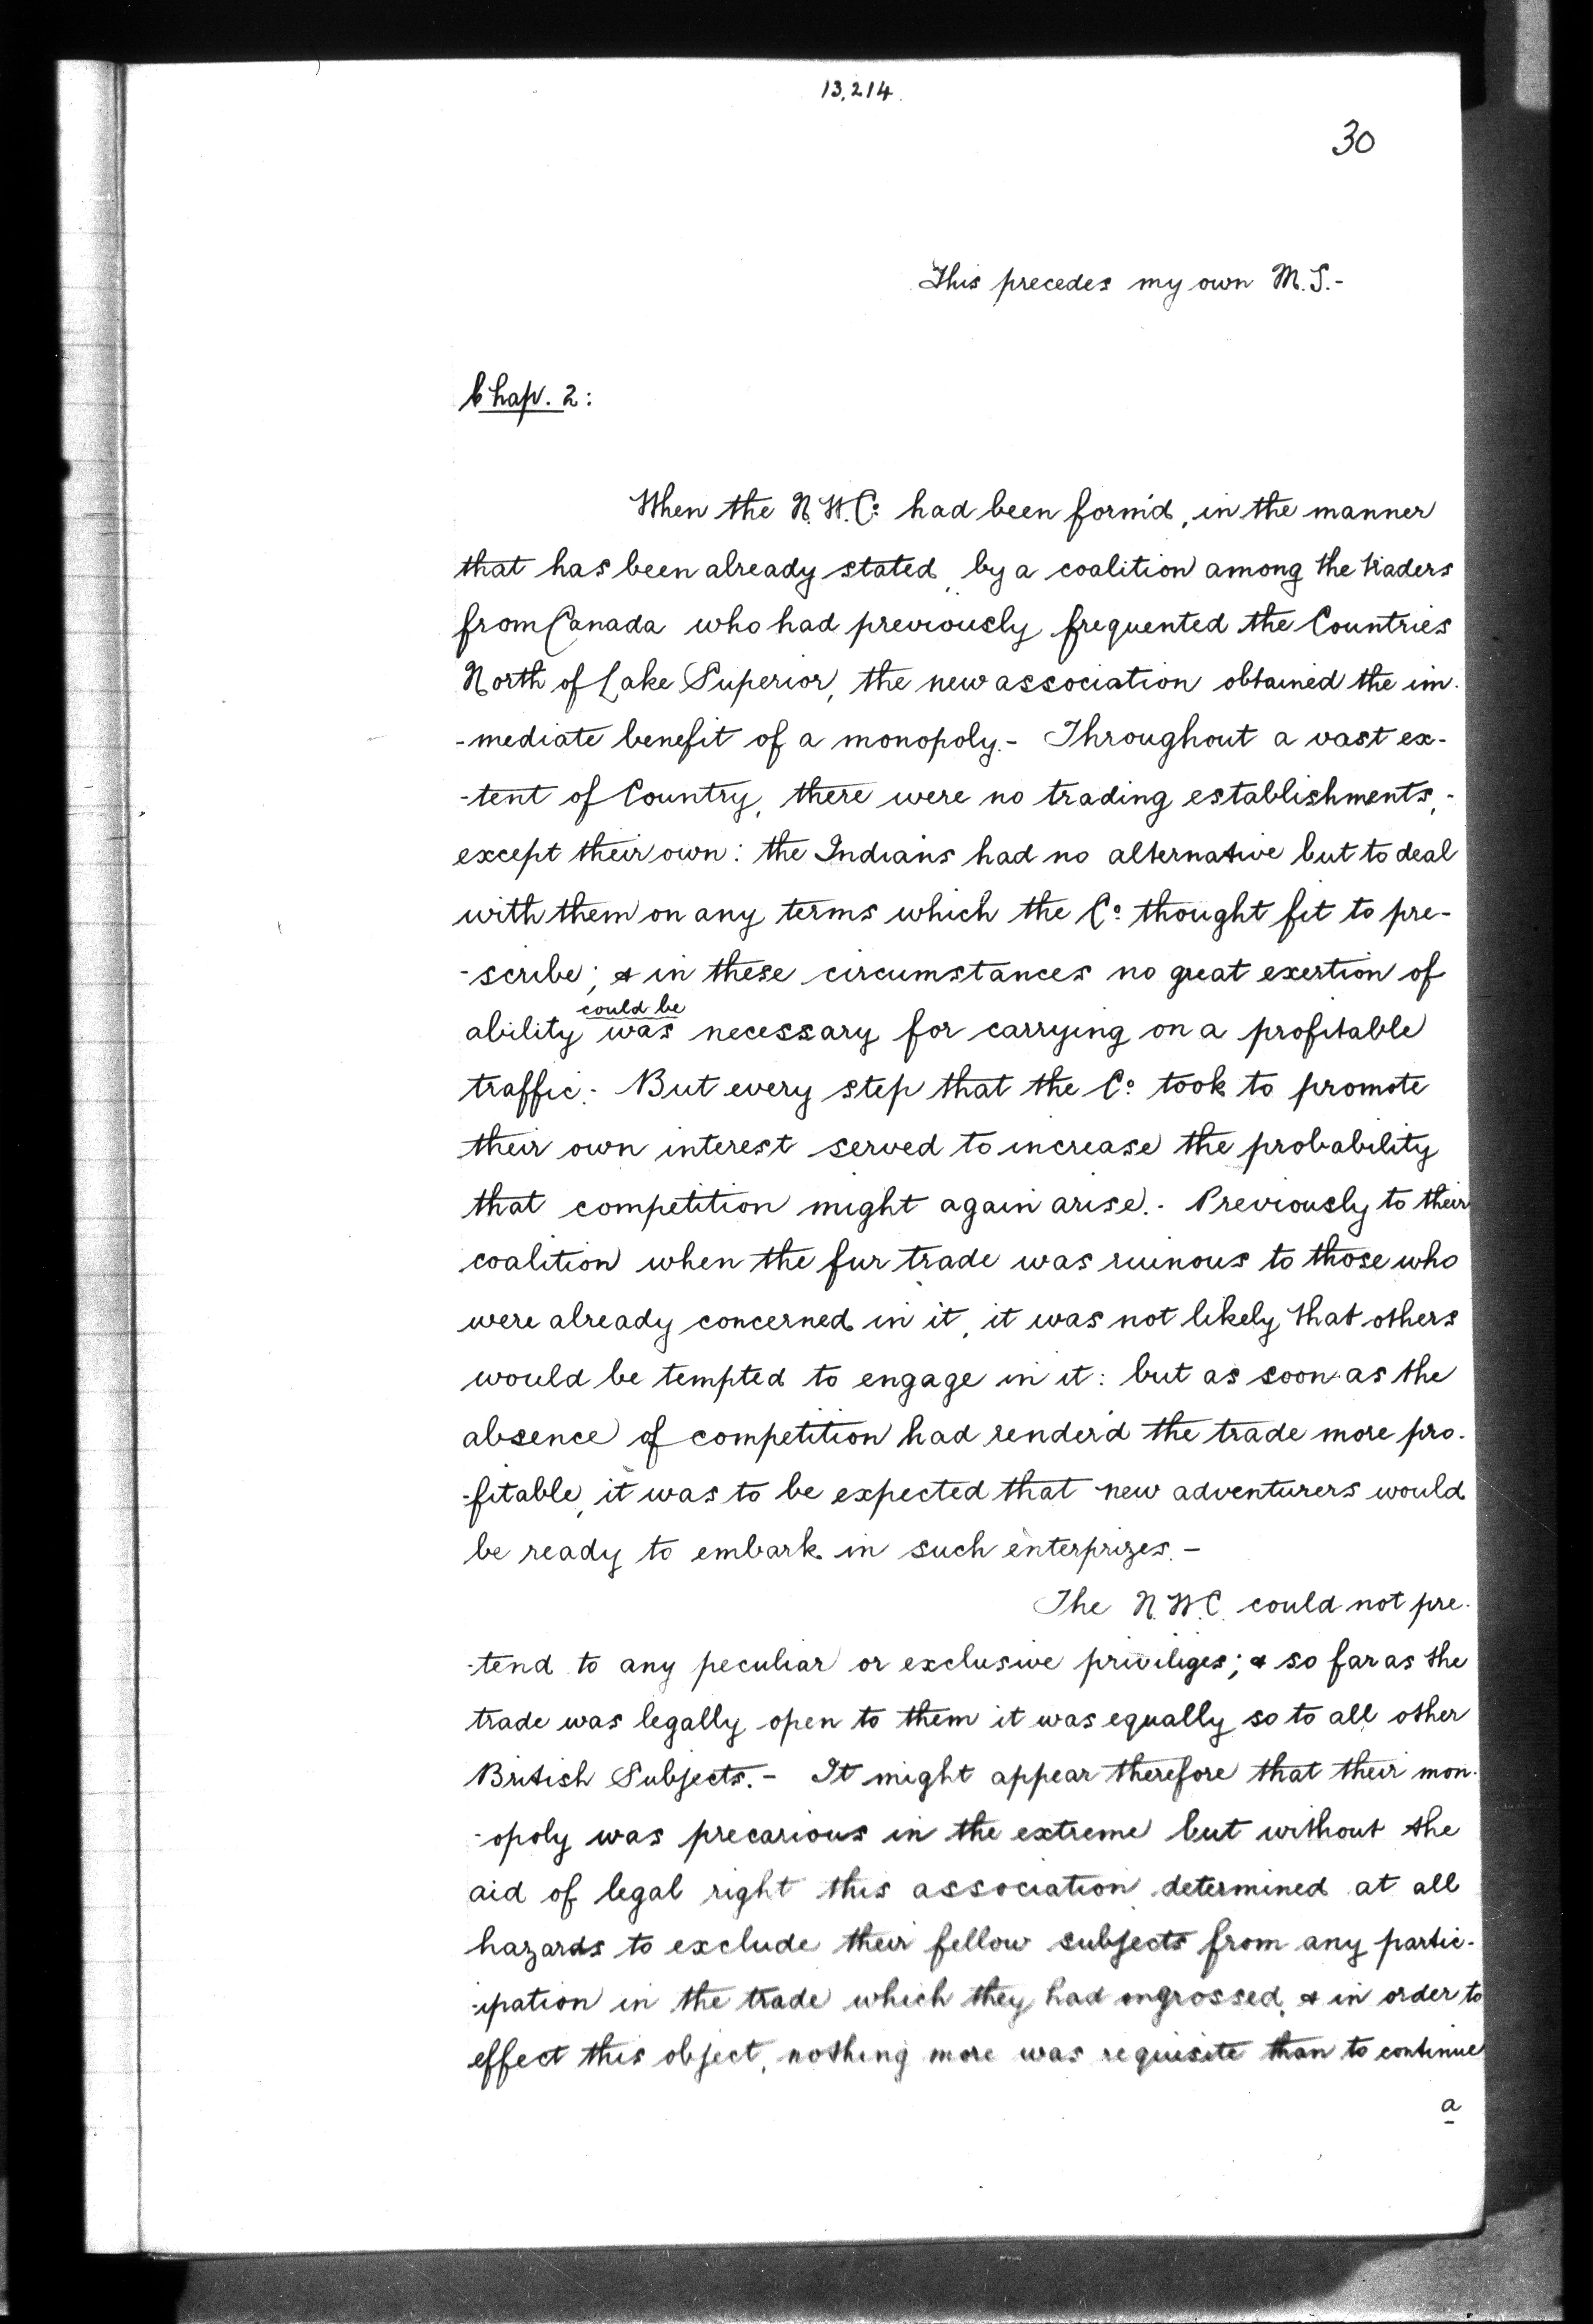 13,214.
30
This precedes my own M.S.-
Chap. 2:
When the N.W.Co: had been form'd, in the manner
that has been already stated, by a coalition among the traders
from Canada who had previously frequented the Countries
North of Lake Superior, the new association obtained the im-
-mediate benefit of a monopoly.- Throughout a vast ex-
-tent of Country, there were no trading establishments,-
except their own: the Indians had no alternative but to deal
with them on any terms which the Co: thought fit to pre-
-scribe; & in these circumstances no great exertion of
could be
ability was necessary for carrying on a profitable
traffic.- But every step that the Co: took to promote
their own interest served to increase the probability
that competition might again arise.- Previously to their
coalition when the fur trade was ruinous to those who
were already concerned in it, it was not likely that others
would be tempted to engage in it: but as soon as the
absence of competition had render'd the trade more pro-
-fitable, it was to be expected that new adventurers would
be ready to embark in such enterprizes.-
The N.W.C. could not pre-
-tend to any peculiar or exclusive priviliges; & so far as the
trade was legally open to them it was equally so to all other
British Subjects.- It might appear therefore that their mon-
-opoly was precarious in the extreme but without the
aid of legal right this association determined at all
hazards to exclude their fellow subjects from any partic-
-ipation in the trade which they had engrossed, & in order to
effect this object, nothing more was requisite than to continue
a